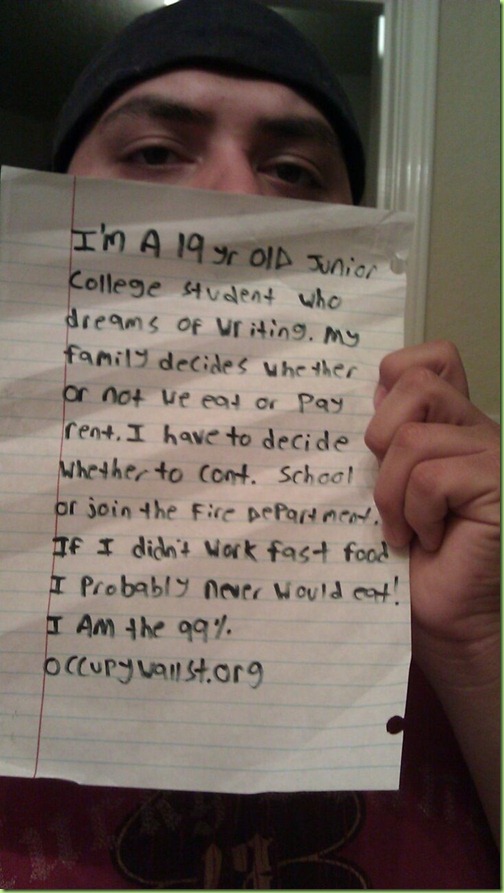 I'm A 19 yr OlD Junior
College student who
dreams of writing. My
family decides whether
or not we eat or Pay
rent. I have to decide
whether to cont. School
or join the Fire DePartment.
If I didn't work fast food
I Probably never would eat!
I AM the 99%.
occupywallst.org